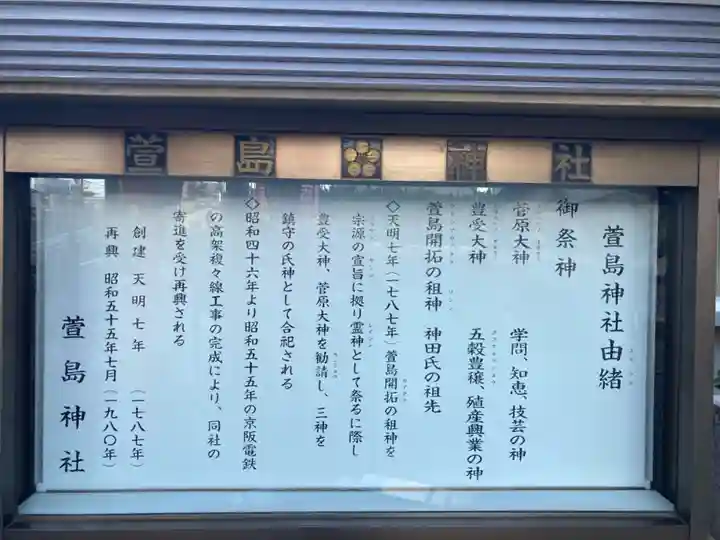 萱島神社
萱島神社由緒
御祭神
菅原大神 学問、知恵、技芸の神
豊受大神 五穀豊穣、殖産興業の神
萱島開拓の祖神 神田氏の祖先
◇天明七年(一七八七年)萱島開拓の祖神を
宗源の宣旨に拠り霊神として祭るに際し
豊受大神、菅原大神を勧請し、三神を
鎮守の氏神として合祀される
◇昭和四十六年より昭和五十五年の京阪電鉄
の高架複々線工事の完成により、同社の
寄進を受け再興される
創建 天明七年 (一七八七年)
再興 昭和五十五年七月(一九八〇年)
萱島神社